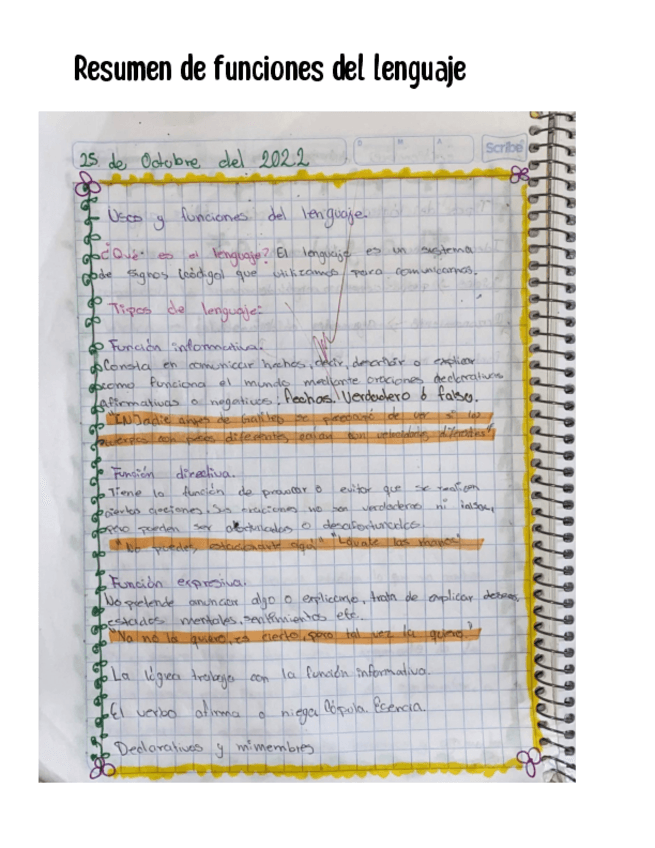 Resumen de funciones del lenguaje
Scribe
D M A
25 de Octubre del 2022
Usos y funciones del lenguaje.
¿Qué es el lenguaje? El lenguaje es un sistema
de signos (código) que utilizamos para comunicarnos.
Tipos de lenguaje:
Función informativa.
Consta en comunicar hechos, decir, describir o explicar
como funciona el mundo mediante oraciones declarativas
afirmativas o negativas. Hechos. Verdadero ó falso.
"[N]adie antes de Galileo se preocupó de ver si los
cuerpos con pesos diferentes caían con velocidades diferentes"
Función directiva.
Tiene la función de provocar o evitar que se realicen
ciertas acciones. Sus oraciones no son verdaderas ni falsas,
pero pueden ser afortunadas o desafortunadas.
"No puedes estacionarte aquí" "Lávate las manos"
Función expresiva.
No pretende anunciar algo o explicarlo, trata de explicar deseos,
estados mentales, sentimientos etc.
"Ya no la quiero, es cierto, pero tal vez la quiero."
La lógica trabaja con la función informativa.
El verbo afirma o niega Cópula. Esencia.
Declarativas y mimembres